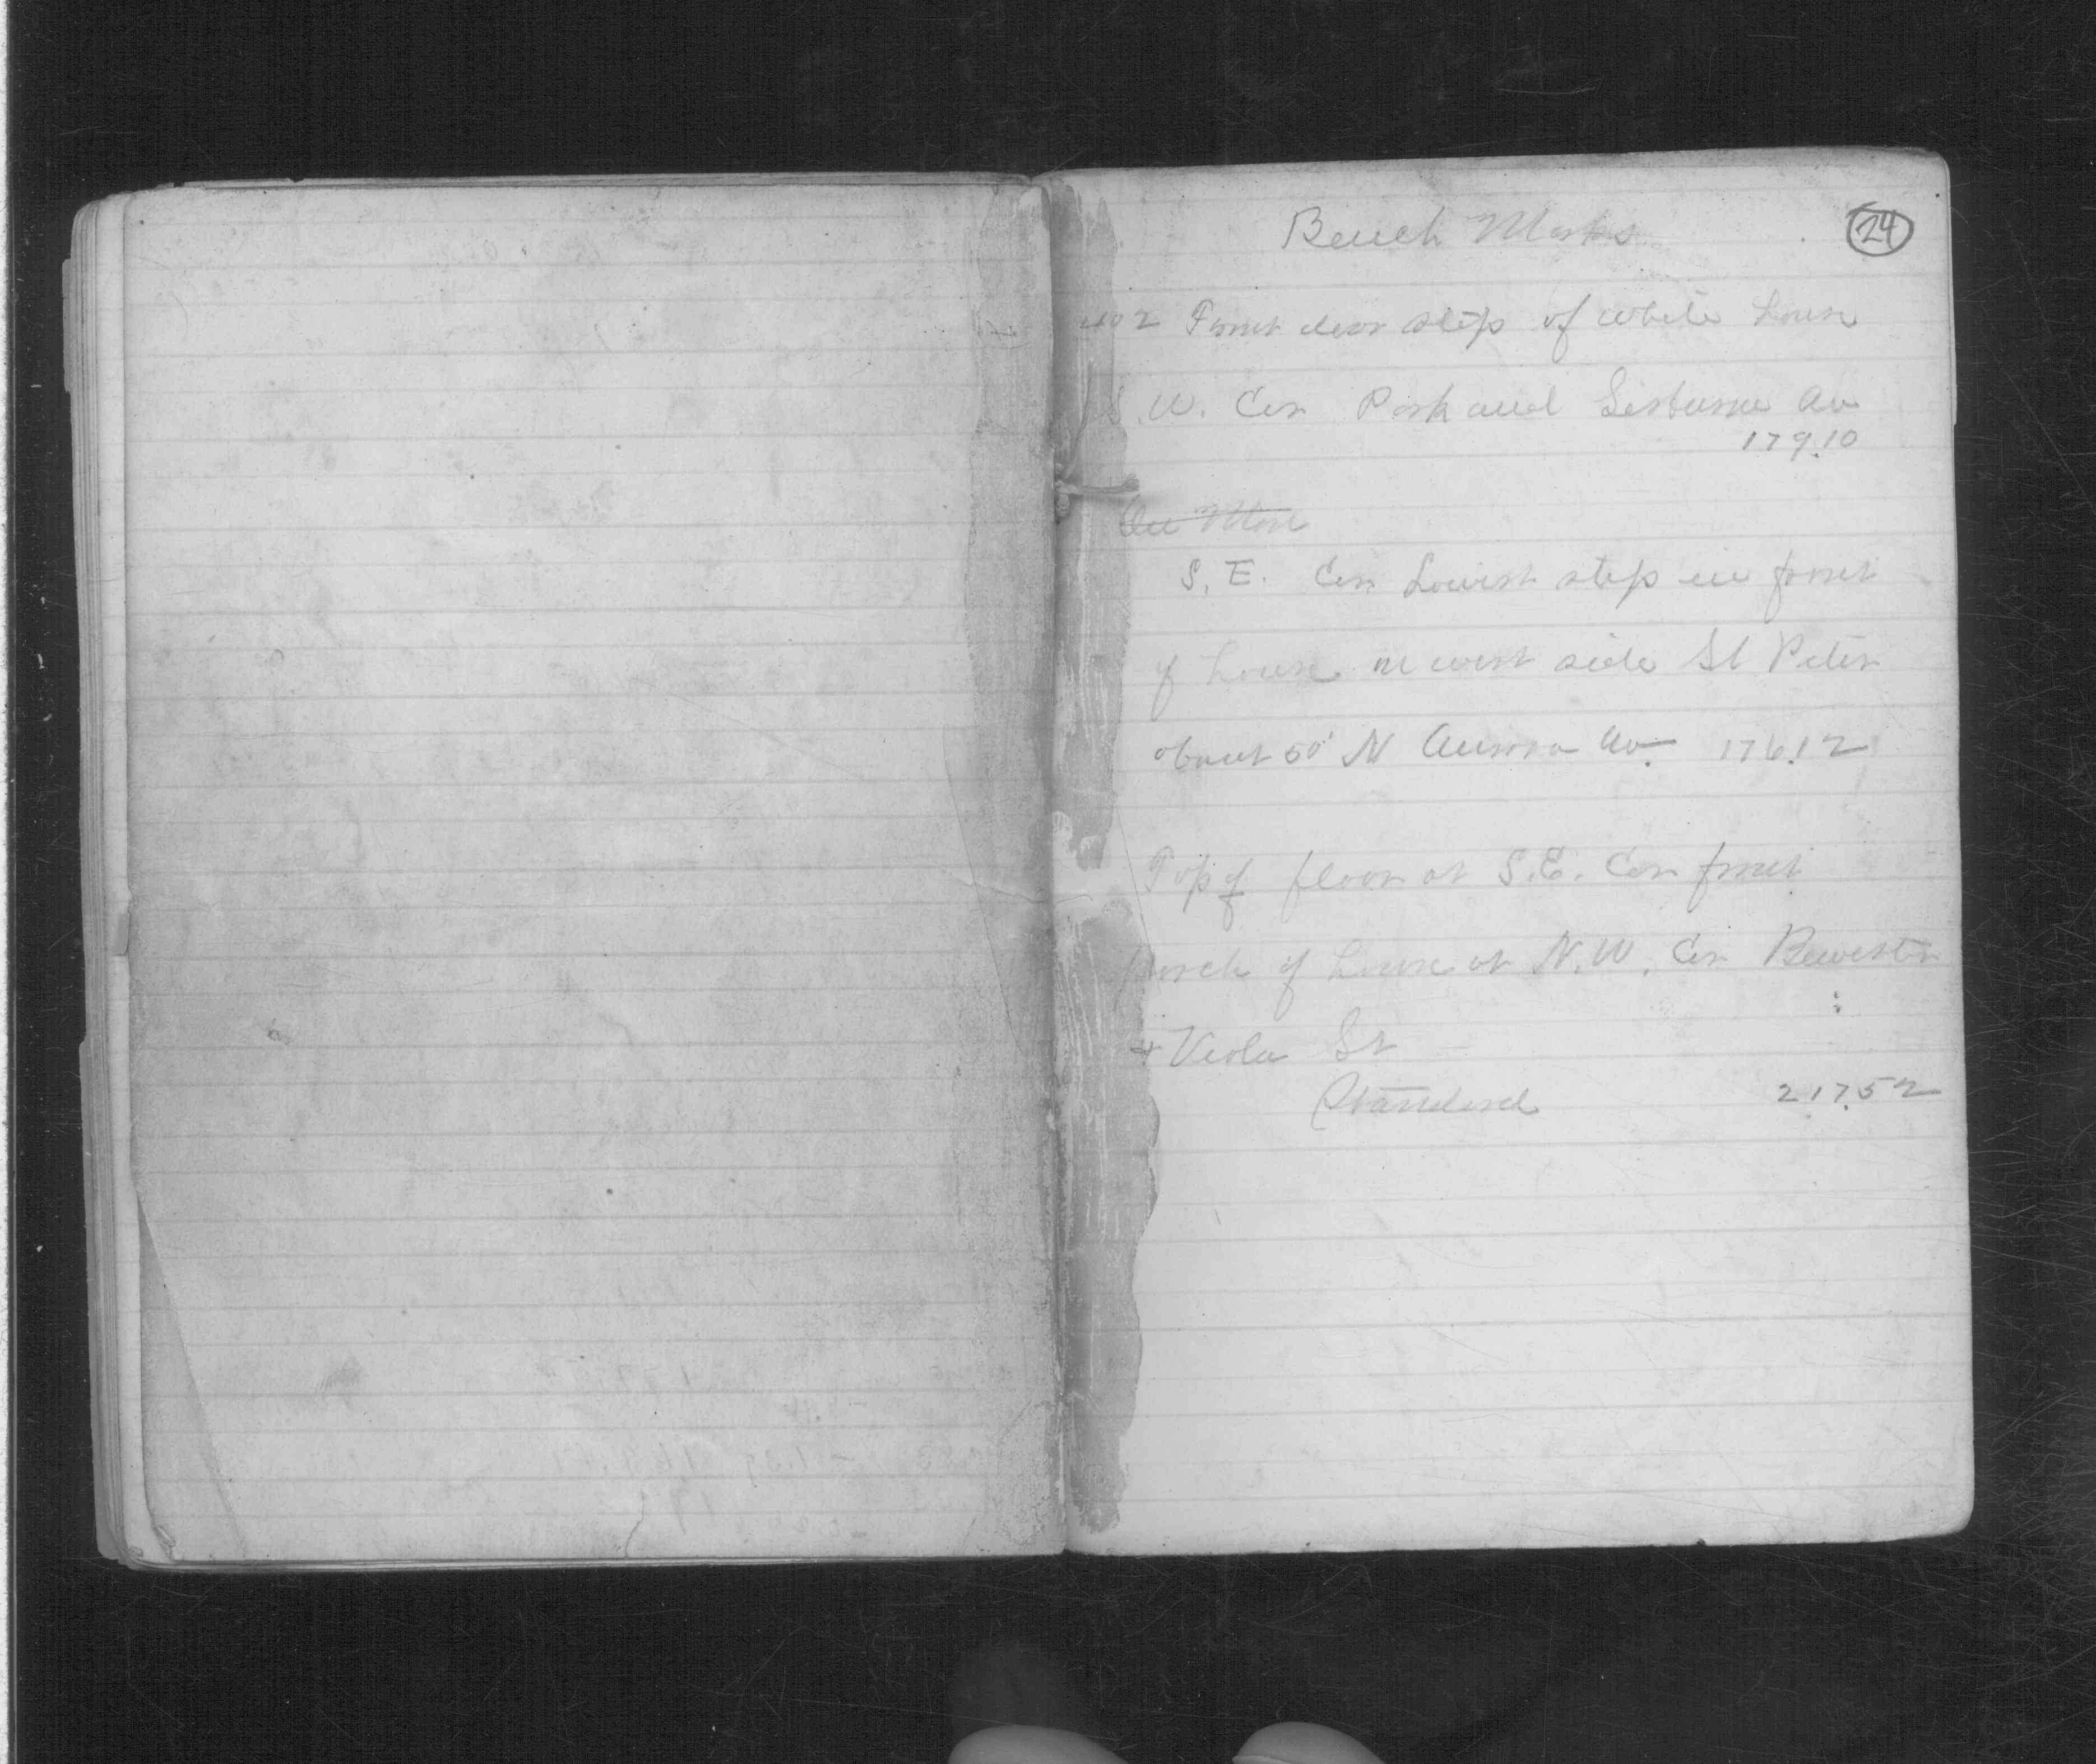 Bench Marks
24
402 Front door step of white house
S.W. Cor Park and Sherburne Av
179.10
S. E. Cor Lowest step in front
of house on west side St Peter
about 50' N Aurora Av. 176.12
Top of floor at S.E. Cor front
porch of house at N.W. Cor Brewster
+ Viola St
Standard 217.52